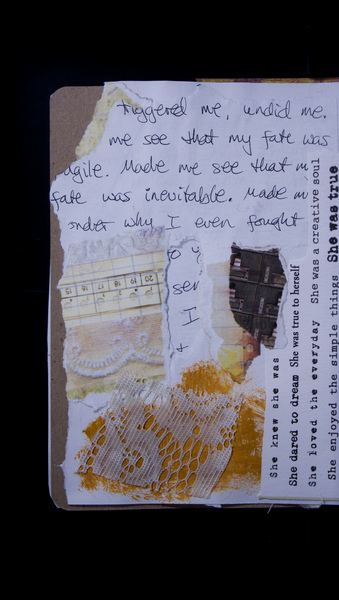 triggered me, undid me.
me see that my fate was
agile. Made me see that m
fate was inevitable. Made m
onder why I even fought
to y
ser
I
+
20 19 18 17 16 15
She knew she was
She dared to dream She was true to herself
She loved the everyday She was a creative soul
She enjoyed the simple things She was true